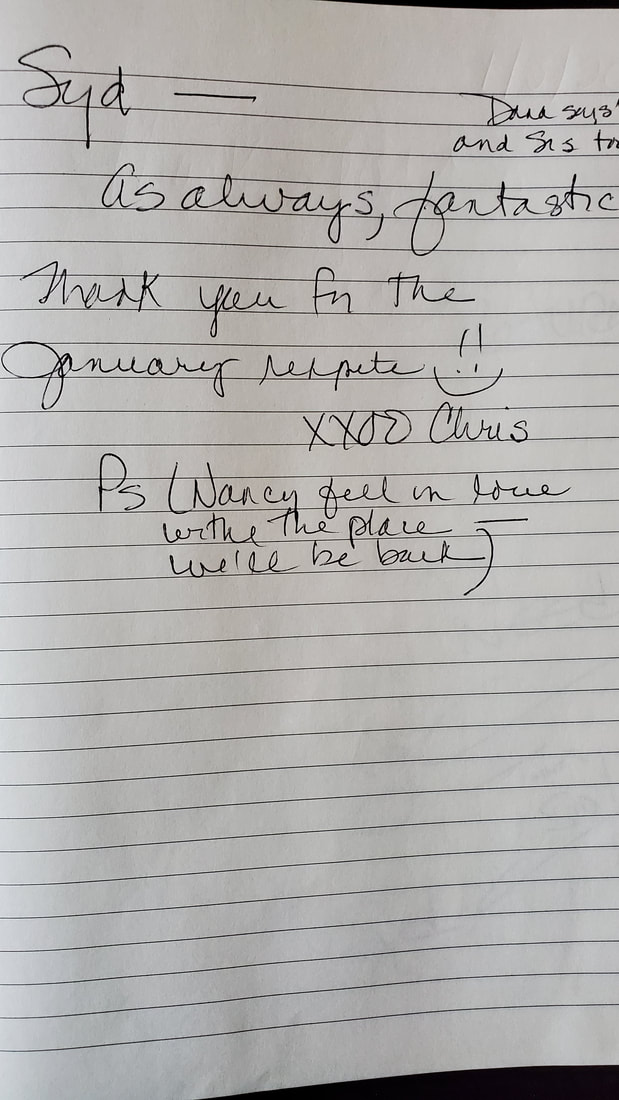 Syd —
Dana says
and Sis too
As always, fantastic
Thank you for the
January respite !!
XXOO Chris
Ps (Nancy feel in love
withe the place —
we'll be back)